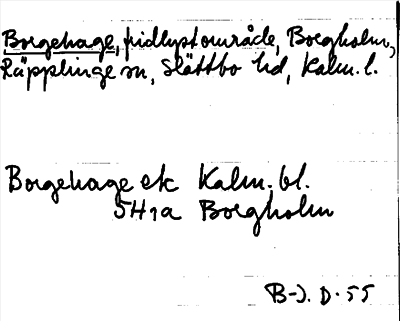 Borgehage, fridlyst område, Borgholm,
Räpplinge sn, Slättbo hd, Kalm. l.
Borgehage ek Kalm. bl.
5H1a Borgholm
B-J. D. 55